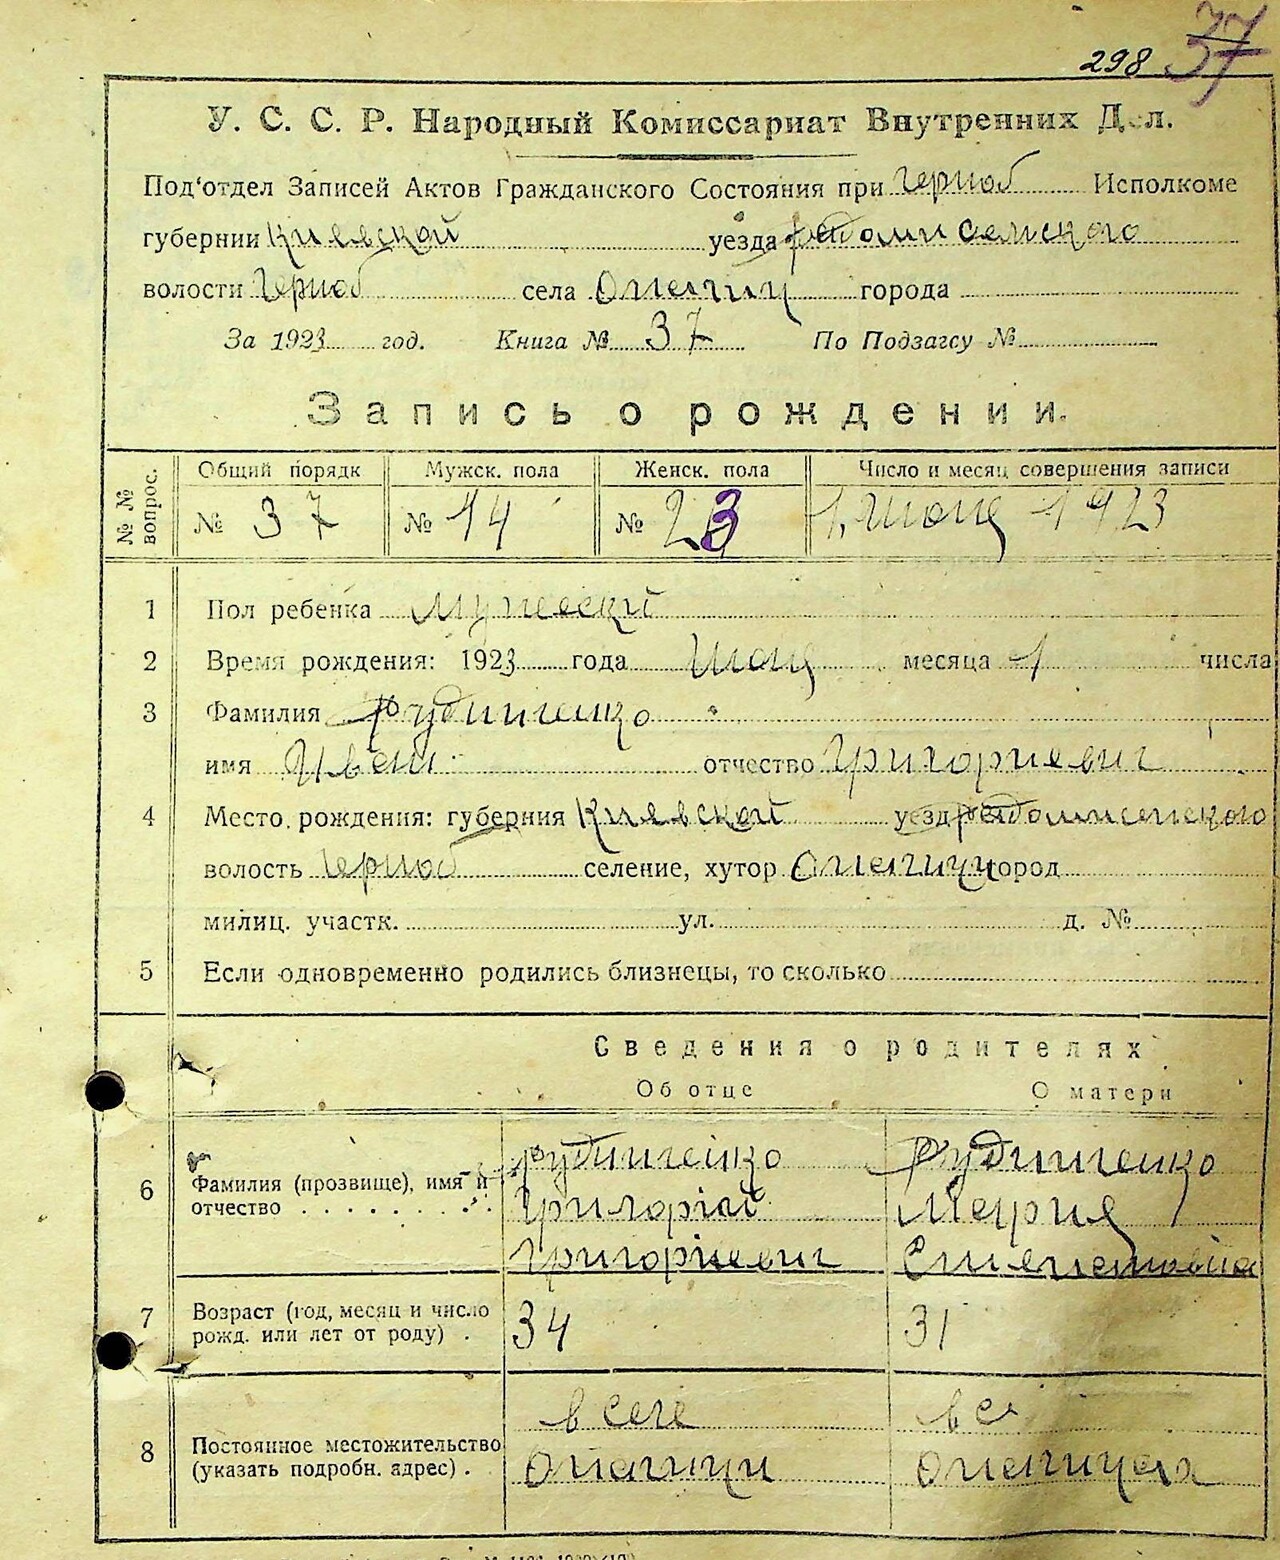 298 37
У. С. С. Р. Народный Комиссариат Внутренних Дел.
Под'отдел Записей Актов Гражданского Состояния при Черноб Исполкоме
губернии Киевской уезда Радомисельского
волости Черноб села Опачичи города
За 1923 год. Книга № 37 По Подзагсу №
Запись о рождении.
№№ вопрос. Общий порядк Мужск. пола Женск. пола Число и месяц совершения записи
№ 37 № 14 № 23 1, июня 1923
1 Пол ребенка Мужеский
2 Время рождения: 1923 года Июня месяца 1 числа
3 Фамилия Рудниченко
имя Иван отчество Григориевич
4 Место рождения: губерния Киевской уезд Радомисельского
волость Черноб селение, хутор Опачичи город
милиц. участк. ул. д. №
5 Если одновременно родились близнецы, то сколько
Сведения о родителях
Об отце О матери
6 Фамилия (прозвище), имя и Рудниченко Рудниченко
отчество Григорий Мария
Григориевич
7 Возраст (год, месяц и число 34 31
рожд. или лет от роду) .
8 в селе в с
Постоянное местожительство
(указать подробн. адрес) . Опачичи Опачичах